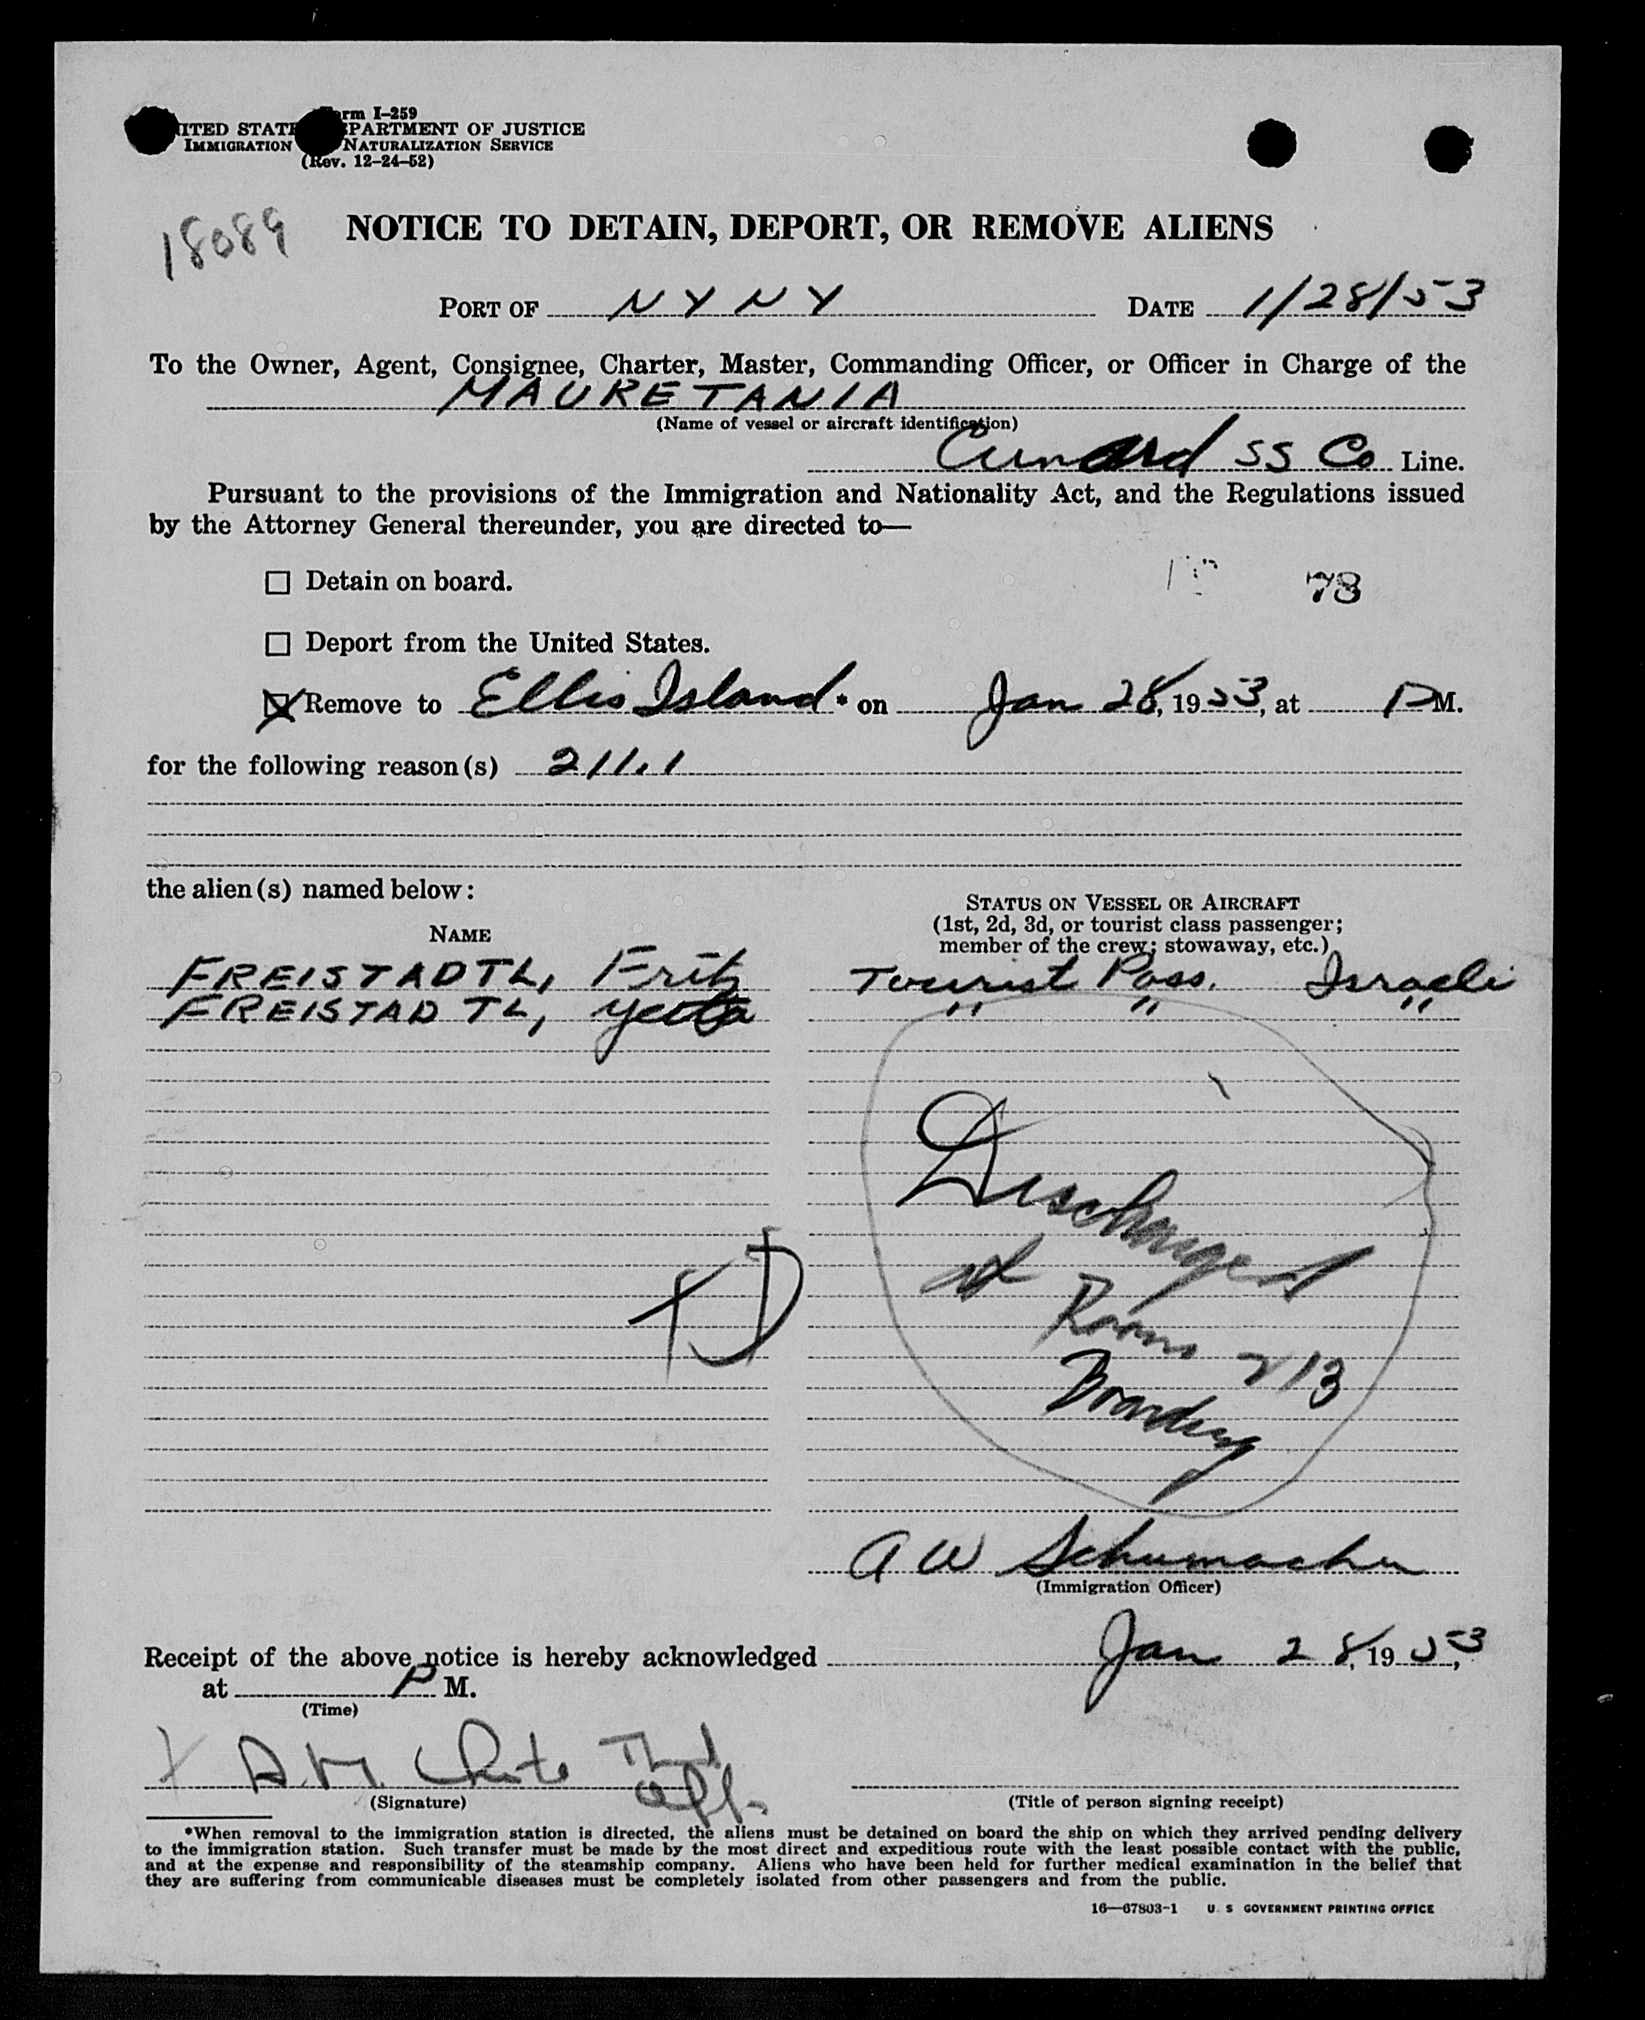 Form I-259
UNITED STATES DEPARTMENT OF JUSTICE
IMMIGRATION NATURALIZATION SERVICE
(Rev. 12-24-52)
18089
NOTICE TO DETAIN, DEPORT, OR REMOVE ALIENS
PORT OF NYNY DATE 1/28/53
To the Owner, Agent, Consignee, Charter, Master, Commanding Officer, or Officer in Charge of the
MAURETANIA
(Name of vessel or aircraft identification)
Cunard SS Co Line.
Pursuant to the provisions of the Immigration and Nationality Act, and the Regulations issued
by the Attorney General thereunder, you are directed to—
☐ Detain on board. 73
☐ Deport from the United States.
☒ Remove to Ellis Island * on Jan 28, 1953, at P M.
for the following reason(s) 211.1
the alien(s) named below:
NAME
STATUS ON VESSEL OR AIRCRAFT
(1st, 2d, 3d, or tourist class passenger;
member of the crew; stowaway, etc.)
FREISTADTL, Fritz Tourist Pass. Israeli
FREISTADTL, Yetta " " "
Discharged
at Room 213
Boarding
D
A W Schumacher
(Immigration Officer)
Receipt of the above notice is hereby acknowledged Jan 28, 1953,
at P M.
(Time)
X
(Signature)
(Title of person signing receipt)
*When removal to the immigration station is directed, the aliens must be detained on board the ship on which they arrived pending delivery
to the immigration station. Such transfer must be made by the most direct and expeditious route with the least possible contact with the public,
and at the expense and responsibility of the steamship company. Aliens who have been held for further medical examination in the belief that
they are suffering from communicable diseases must be completely isolated from other passengers and from the public.
16—67803-1 U. S GOVERNMENT PRINTING OFFICE